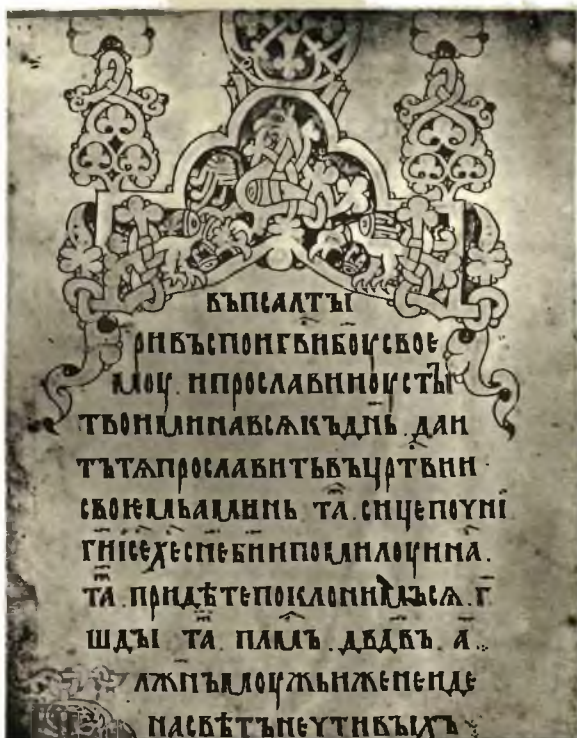 въпсалты
ривъспоигв҃ибоусвое
моу. ипрославиноусты
твоиминавсѧкъдн҃ь. даи
тътѧпрославитьвъцр҃твии
своемьаминь та҃. сицепочни
г҃и і҃се х҃е сн҃е би҃ипомилоуина҃.
та҃. придѣтепоклонимъсѧ. г҃
шды та҃. п҃лмъ. дв҃двъ. а҃.
лж҃нъмоужьиженеиде
насвѣтънечтивыхъ